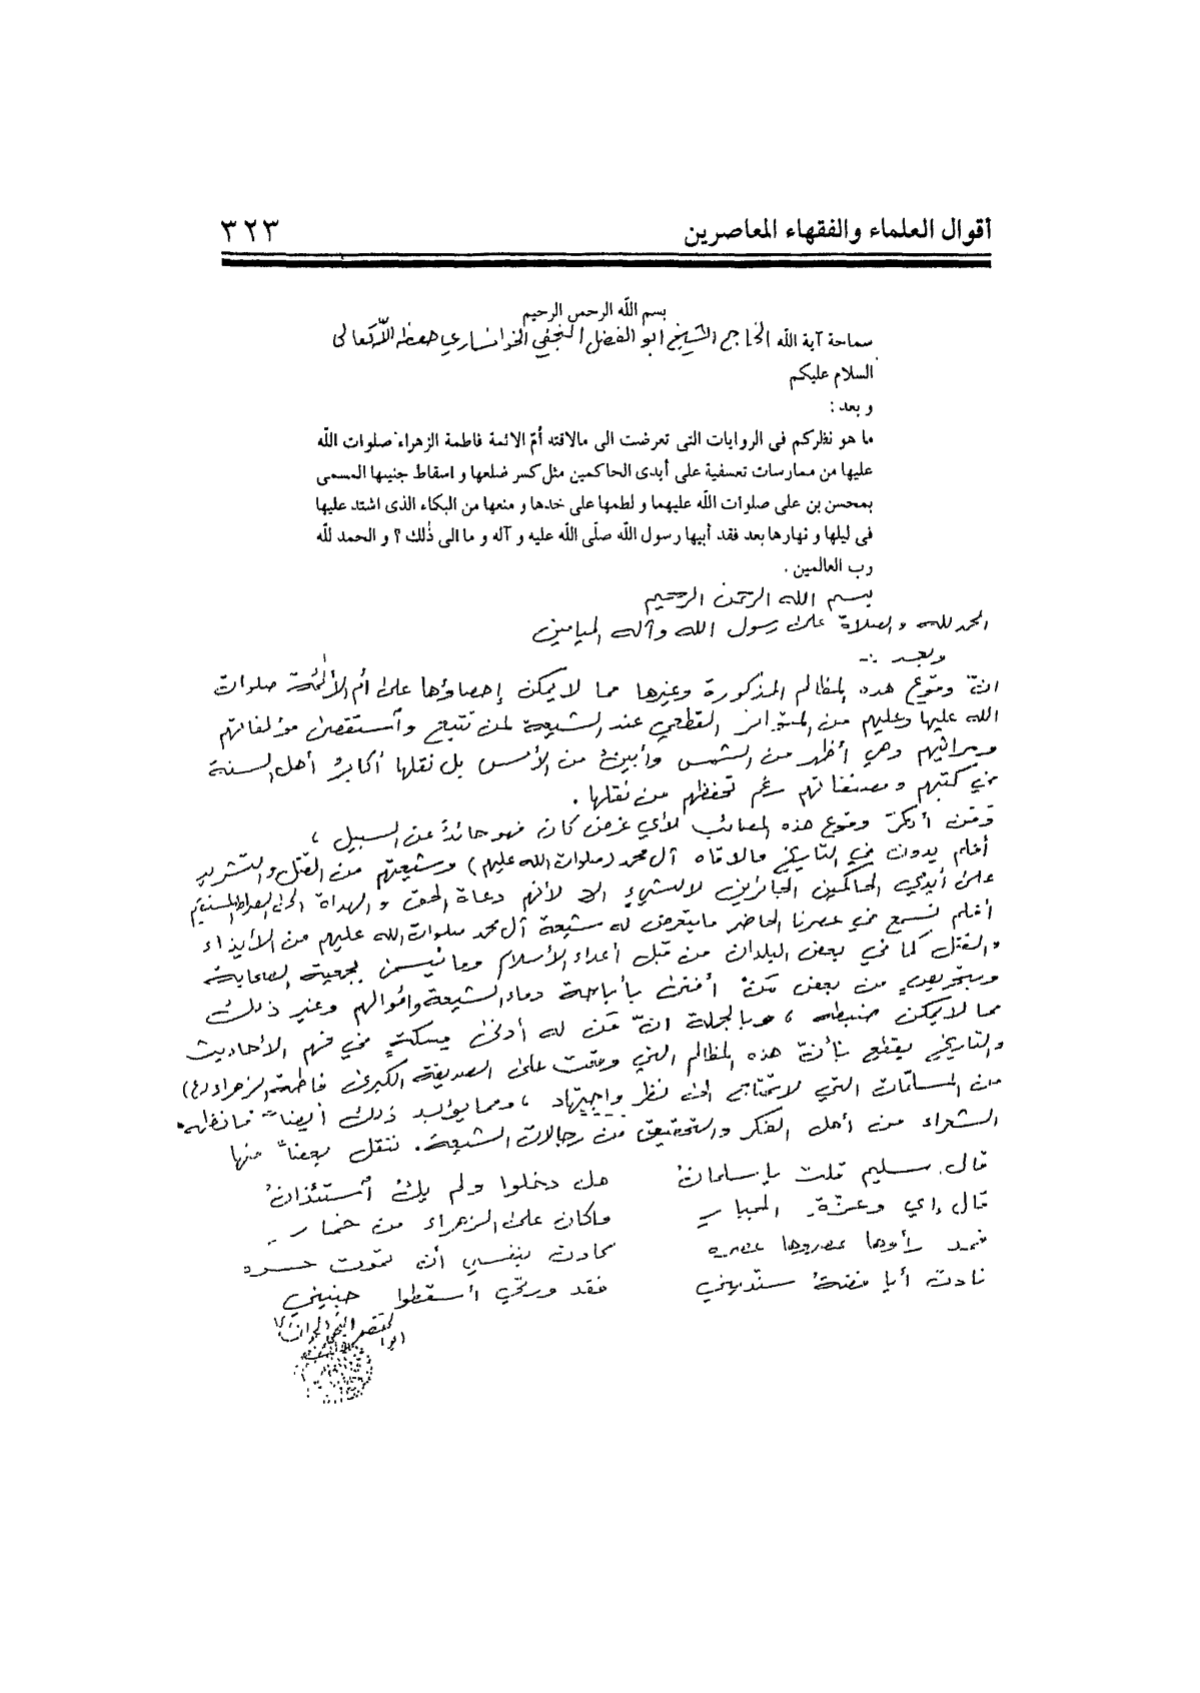 أقوال العلماء والفقهاء المعاصرين ٣٢٣
بسم اللّه الرحمن الرحيم
سماحة آية اللّه الحاج الشيخ ابو الفضل النجفي الخوانساري حفظه اللّه تعالى
السلام عليكم
و بعد :
ما هو نظركم فى الروايات التى تعرضت الى مالاقته أمّ الائمة فاطمة الزهراء صلوات اللّه
عليها من ممارسات تعسفية على أيدى الحاكمين مثل كسر ضلعها و اسقاط جنينها المسمى
بمحسن بن على صلوات اللّه عليهما و لطمها على خدها و منعها من البكاء الذى اشتد عليها
فى ليلها و نهارها بعد فقد أبيها رسول اللّه صلّى اللّه عليه و آله و ما الى ذٰلك ؟ و الحمد للّه
رب العالمين .
بسم الله الرحمن الرحيم
الحمد لله والصلاة على رسول الله وآله الميامين
وبعد :-
انّ وقوع هذه المظالم المذكورة وغيرها مما لا يمكن إحصاؤها على أم الأئمة صلوات
الله عليها وعليهم من المتواتر القطعي عند الشيعة لمن تتبع وأستقصى مؤلفاتهم
وهي أظهر من الشمس وأبين من الأمس بل نقلها أكابر أهل السنة
في كتبهم ومصنفاتهم رغم تحفظهم من نقلها .
ومن أنكر وقوع هذه المصائب لأي غرض كان فهو حائد عن السبيل ،
أفلم يدون في التاريخ مالاقاه آل محمد (صلوات الله عليهم) وشيعتهم من القتل والتشريد
على أيدي الحاكمين الجائرين لا لشيءٍ الا لأنهم دعاة الحق والهداة الى الصراط المستقيم
أفلم نسمع في عصرنا الحاضر ما يتعرض له شيعة آل محمد صلوات الله عليهم من الأيذاء
والقتل كما في بعض البلدان من قبل أعداء الأسلام وما تيسمى بجمعية الصحابة
وبتحريض من بعض مَن أفتى بأباحة دماء الشيعة واموالهم وغير ذلك
مما لا يمكن ضبطه ، وبالجملة انّ مَن له أدنى مسكة في فهم الأحاديث
والتاريخ يقطع بأنّ هذه المظالم التي وقعت على الصديقة الكبرى فاطمة الزهراء (ع)
من المسلّمات التي لا تحتاج الى نظر واجتهاد ، ومما يؤيد ذلك أيضاً ما نظمه
الشعراء من أهل الفكر والتحقيق من رجالات الشيعة . ننقل بعضاً منها
قال سليم قلت يا سلمان هل دخلوا ولم يك أستئذان
قال إي وعزة الجبار وما كان على الزهراء من خمار
فمذ رأوها عصروها عصره كادت بنفسي أن تموت حسره
نادت أيا فضة سنديني فقد وربّي أسقطوا جنيني